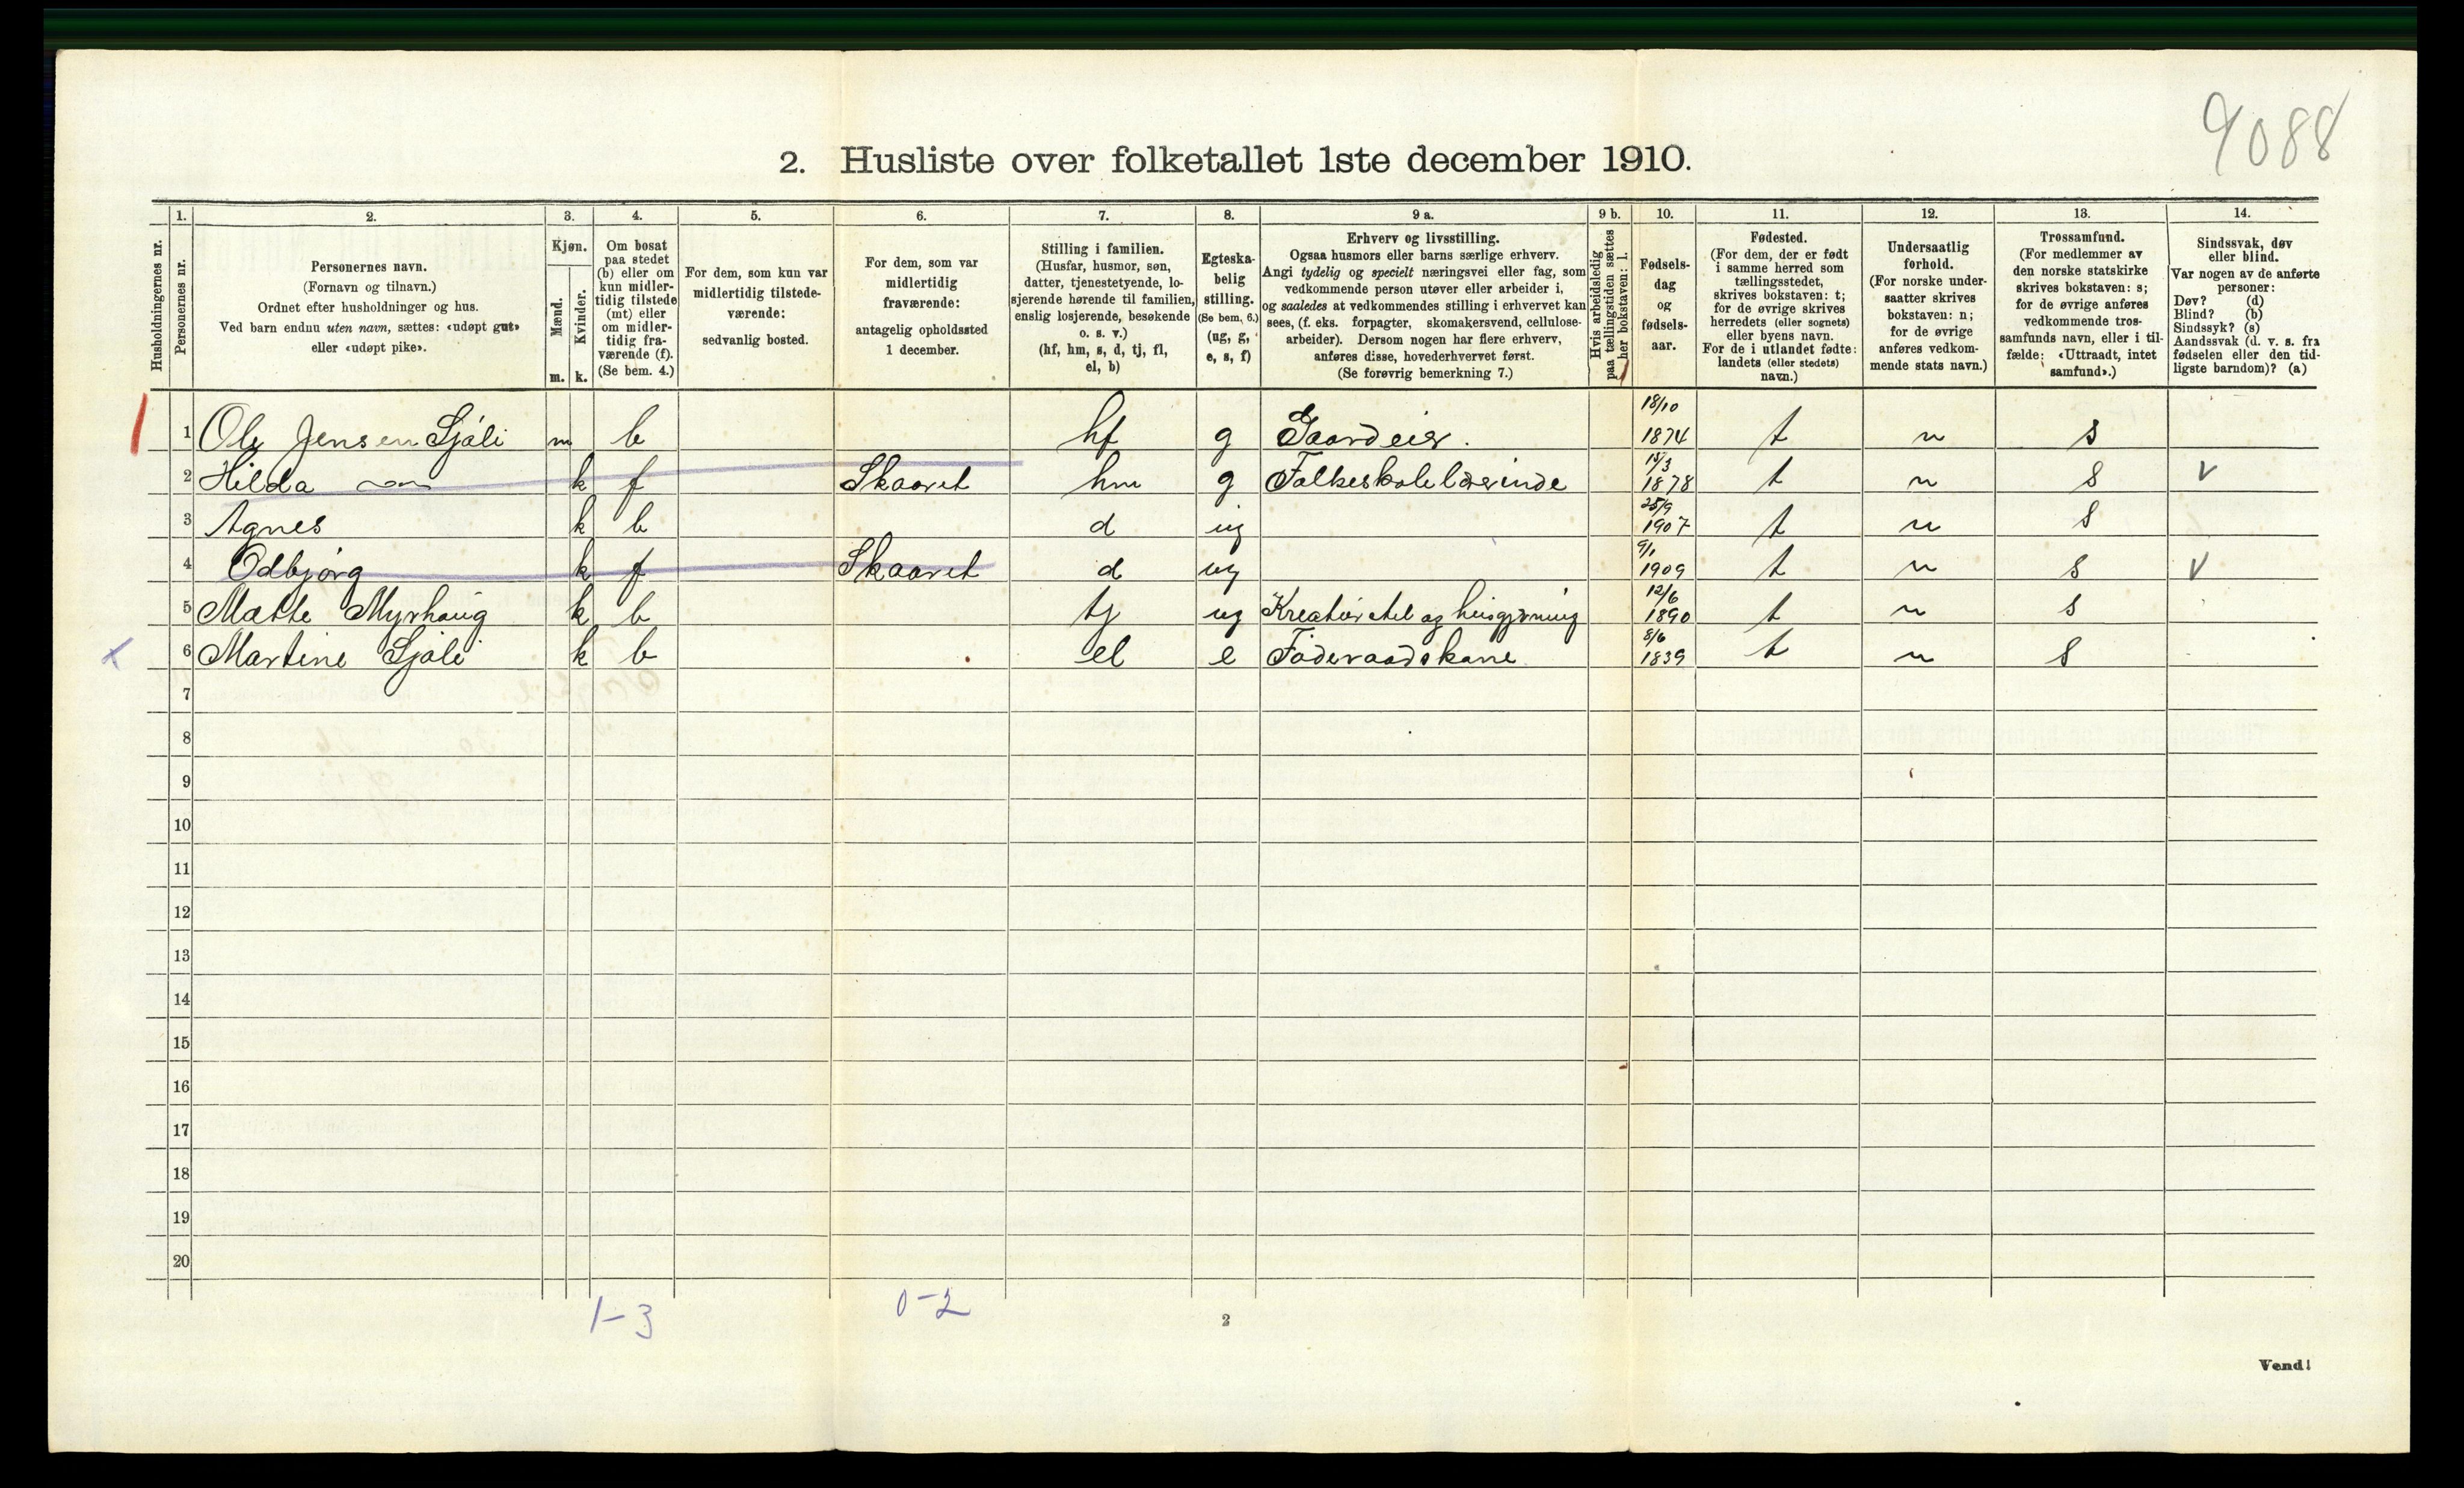 9088
2. Husliste over folketallet 1ste december 1910.
Husholdningernes nr.
1. Personernes nr.
2. Personernes navn.
(Fornavn og tilnavn.)
Ordnet efter husholdninger og hus.
Ved barn endnu uten navn, sættes: «udøpt gut»
eller «udøpt pike».
3. Kjøn.
Mænd. m.
Kvinder. k.
4. Om bosat
paa stedet
(b) eller om
kun midler-
tidig tilstede
(mt) eller
om midler-
tidig fra-
værende (f).
(Se bem. 4.)
5. For dem, som kun var
midlertidig tilstede-
værende:
sedvanlig bosted.
6. For dem, som var
midlertidig
fraværende:
antagelig opholdssted
1 december.
7. Stilling i familien.
(Husfar, husmor, søn,
datter, tjenestetyende, lo-
sjerende hørende til familien,
enslig losjerende, besøkende
o. s. v.)
(hf, hm, s, d, tj, fl,
el, b)
8. Egteska-
belig
stilling.
(Se bem. 6.)
(ug, g,
e, s, f)
9 a. Erhverv og livsstilling.
Ogsaa husmors eller barns særlige erhverv.
Angi tydelig og specielt næringsvei eller fag, som
vedkommende person utøver eller arbeider i,
og saaledes at vedkommendes stilling i erhvervet kan
sees, (f. eks. forpagter, skomakersvend, cellulose-
arbeider). Dersom nogen har flere erhverv,
anføres disse, hovederhvervet først.
(Se forøvrig bemerkning 7.)
9 b. Hvis arbeidsledig
paa tællingstiden sættes
her bokstaven: l.
10. Fødsels-
dag
og
fødsels-
aar.
11. Fødested.
(For dem, der er født
i samme herred som
tællingsstedet,
skrives bokstaven: t;
for de øvrige skrives
herredets (eller sognets)
eller byens navn.
For de i utlandet fødte:
landets (eller stedets)
navn.)
12. Undersaatlig
forhold.
(For norske under-
saatter skrives
bokstaven: n;
for de øvrige
anføres vedkom-
mende stats navn.)
13. Trossamfund.
(For medlemmer av
den norske statskirke
skrives bokstaven: s;
for de øvrige anføres
vedkommende tros-
samfunds navn, eller i til-
fælde: «Uttraadt, intet
samfund».)
14. Sindssvak, døv
eller blind.
Var nogen av de anførte
personer:
Døv? (d)
Blind? (b)
Sindssyk? (s)
Aandssvak (d. v. s. fra
fødselen eller den tid-
ligste barndom)? (a)
1 Ole Jensen Sjøli m b hf g Gaardeier. 18/10 1874 t n s
2 Hilda k f Skaaret hm g Folkeskolelærerinde 15/3 1878 t n s v
3 Agnes k b d ug 25/9 1907 t n s
4 Odbjørg k f Skaaret d ug 9/1 1909 t n s v
5 Mathe Myrhaug k b tj ug Kreaturstel og husgjørning 12/6 1890 t n s
x 6 Martine Sjøli k b el e Føderaadskone 8/6 1839 t n s
7
8
9
10
11
12
13
14
15
16
17
18
19
20
1-3
0-2
2
Vend!